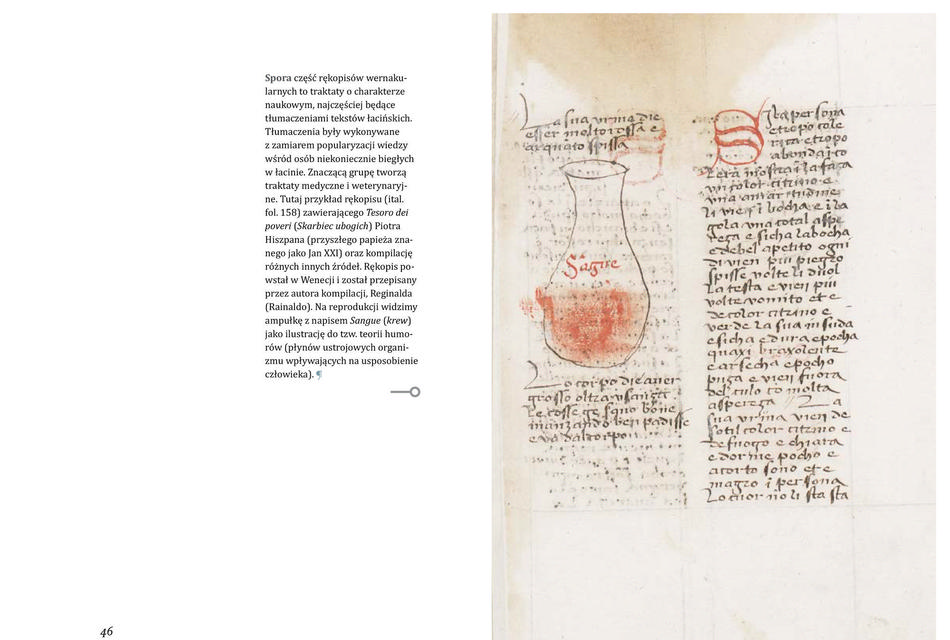 Spora część rękopisów wernaku-
larnych to traktaty o charakterze
naukowym, najczęściej będące
tłumaczeniami tekstów łacińskich.
Tłumaczenia były wykonywane
z zamiarem popularyzacji wiedzy
wśród osób niekoniecznie biegłych
w łacinie. Znaczącą grupę tworzą
traktaty medyczne i weterynaryj-
ne. Tutaj przykład rękopisu (ital.
fol. 158) zawierającego Tesoro dei
poveri (Skarbiec ubogich) Piotra
Hiszpana (przyszłego papieża zna-
nego jako Jan XXI) oraz kompilację
różnych innych źródeł. Rękopis po-
wstał w Wenecji i został przepisany
przez autora kompilacji, Reginalda
(Rainaldo). Na reprodukcji widzimy
ampułkę z napisem Sangue (krew)
jako ilustrację do tzw. teorii humo-
rów (płynów ustrojowych organi-
zmu wpływających na usposobienie
człowieka). ¶
46
La sua urina die
esser molto rossa e
alquanto spissa
Sague
Lo corpo die aver
grosso oltra usanza
Le cosse
manzando ben padisse
e va dal corpo
persona
e tropo cole
rica e tropo
un color citrino e
gola una total aspe
e debel apetito ogni
di vien piu piegro
spisse volte li duol
La testa e vien piu
volte vomito et e
de color citrino e
verde La sua
e sicha e dura epocha
e arsecha epocho
del culo co molta
aspereza La
sua urina vien de
sotil color citrino e
de fuogo e chiara
e dorme pocho e
a corto sono et e
magro i persona
Lo cuor no li sta